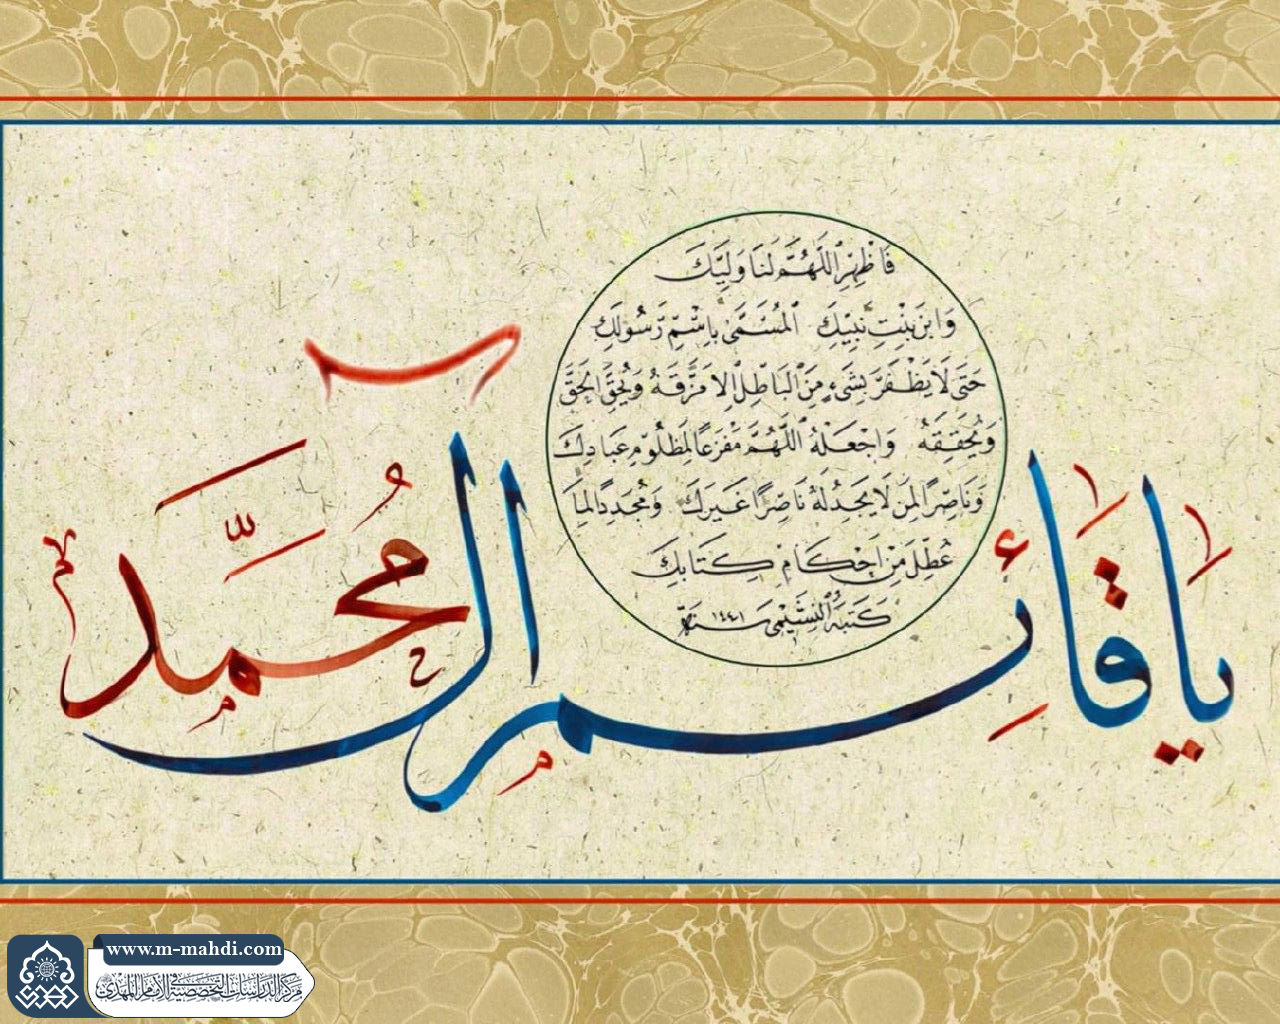 فَأَظْهِرِ اللَّهُمَّ لَنَا وَلِيَّكَ
وَابْنَ بِنْتِ نَبِيِّكَ الْمُسَمَّىٰ بِاسْمِ رَسُولِكَ
حَتَّىٰ لَا يَظْفَرَ بِشَيْءٍ مِنَ الْبَاطِلِ إِلَّا مَزَّقَهُ وَيُحِقَّ الْحَقَّ
وَيُحَقِّقَهُ وَاجْعَلْهُ اللَّهُمَّ مَفْزَعًا لِمَظْلُومِ عِبَادِكَ
وَنَاصِرًا لِمَنْ لَا يَجِدُ لَهُ نَاصِرًا غَيْرَكَ وَمُجَدِّدًا لِمَا
عُطِّلَ مِنْ أَحْكَامِ كِتَابِكَ
كَتَبَهُ النشيمي سنة ١٤٤١
يا قائِم آل مُحَمَّد
www.m-mahdi.com
مركز الدراسات التخصصية في الإمام المهدي